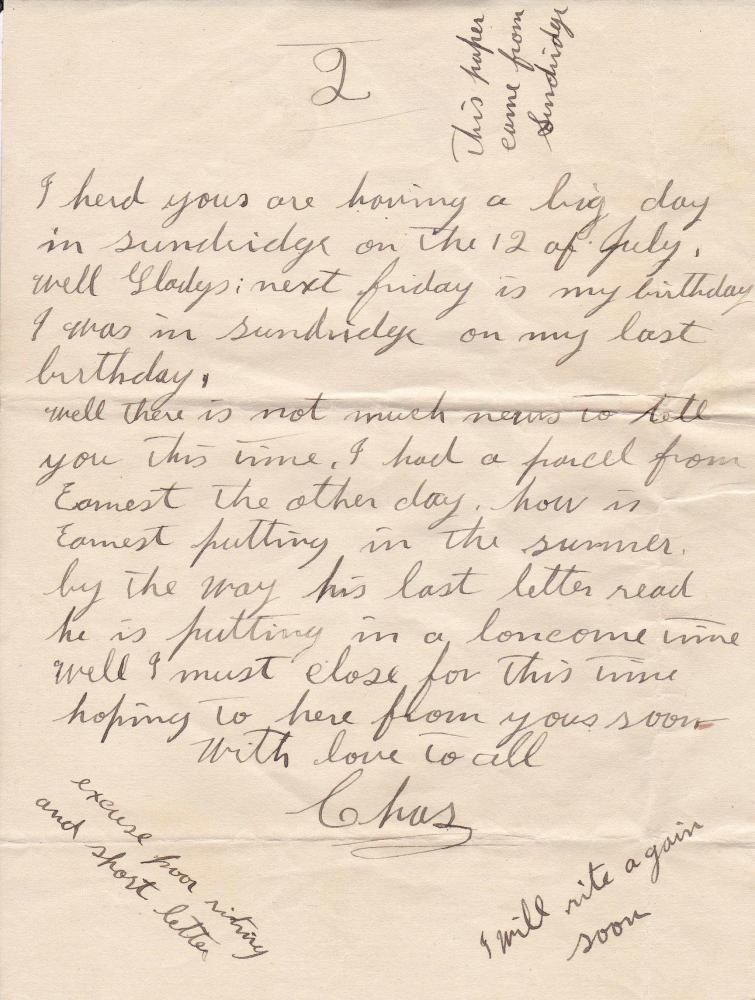 2
This paper
came from
Sundridge
I herd yous are having a big day
in sundridge on the 12 of July.
well Gladys; next friday is my birthday
I was in sundridge on my last
birthday.
well there is not much news to tell
you this time. I had a parcel from
Earnest the other day. how is
Earnest putting in the summer.
by the way his last letter read
he is putting in a loncome time
well I must close for this time
hoping to here from yous soon
With love to all
Chas
excuse poor riting
and short letter
I will rite again
soon